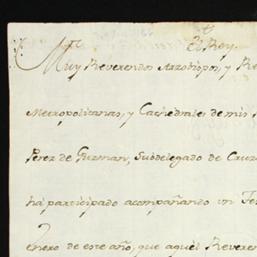 El Rey.
Muy Reverendos Arzobispos, y Re
Metropolitanas, y Cathedrales de mis
Perez de Guzman, Subdelegado de Cruz
há participado acompañando un Tes
enero de este año, que aquel Reveren